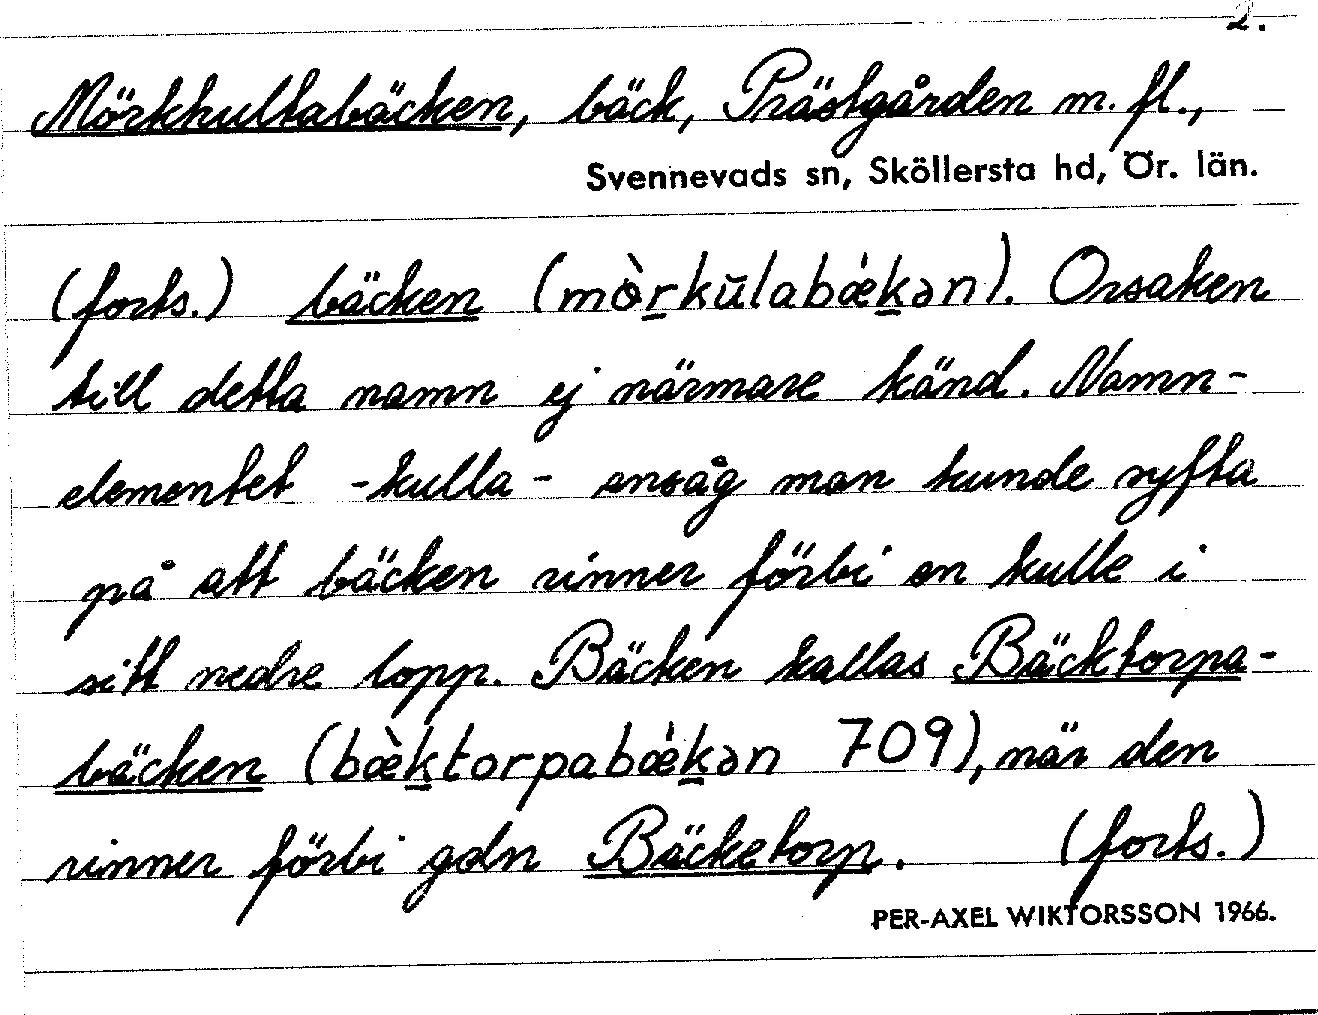 2.
Mörkhultabäcken, bäck, Prästgården m. fl.,
Svennevads sn, Sköllersta hd, Ör. län.
(forts.) bäcken (mòrkūlabǽkən). Orsaken
till detta namn ej närmare känd. Namn-
elementet -kulla- ansåg man kunde syfta
på att bäcken rinner förbi en kulle i
sitt nedre lopp. Bäcken kallas Bäcktorpa-
bäcken (bæ̀ktorpabǽkən 709), när den
rinner förbi gdn Bäcketorp. (forts.)
PER-AXEL WIKTORSSON 1966.